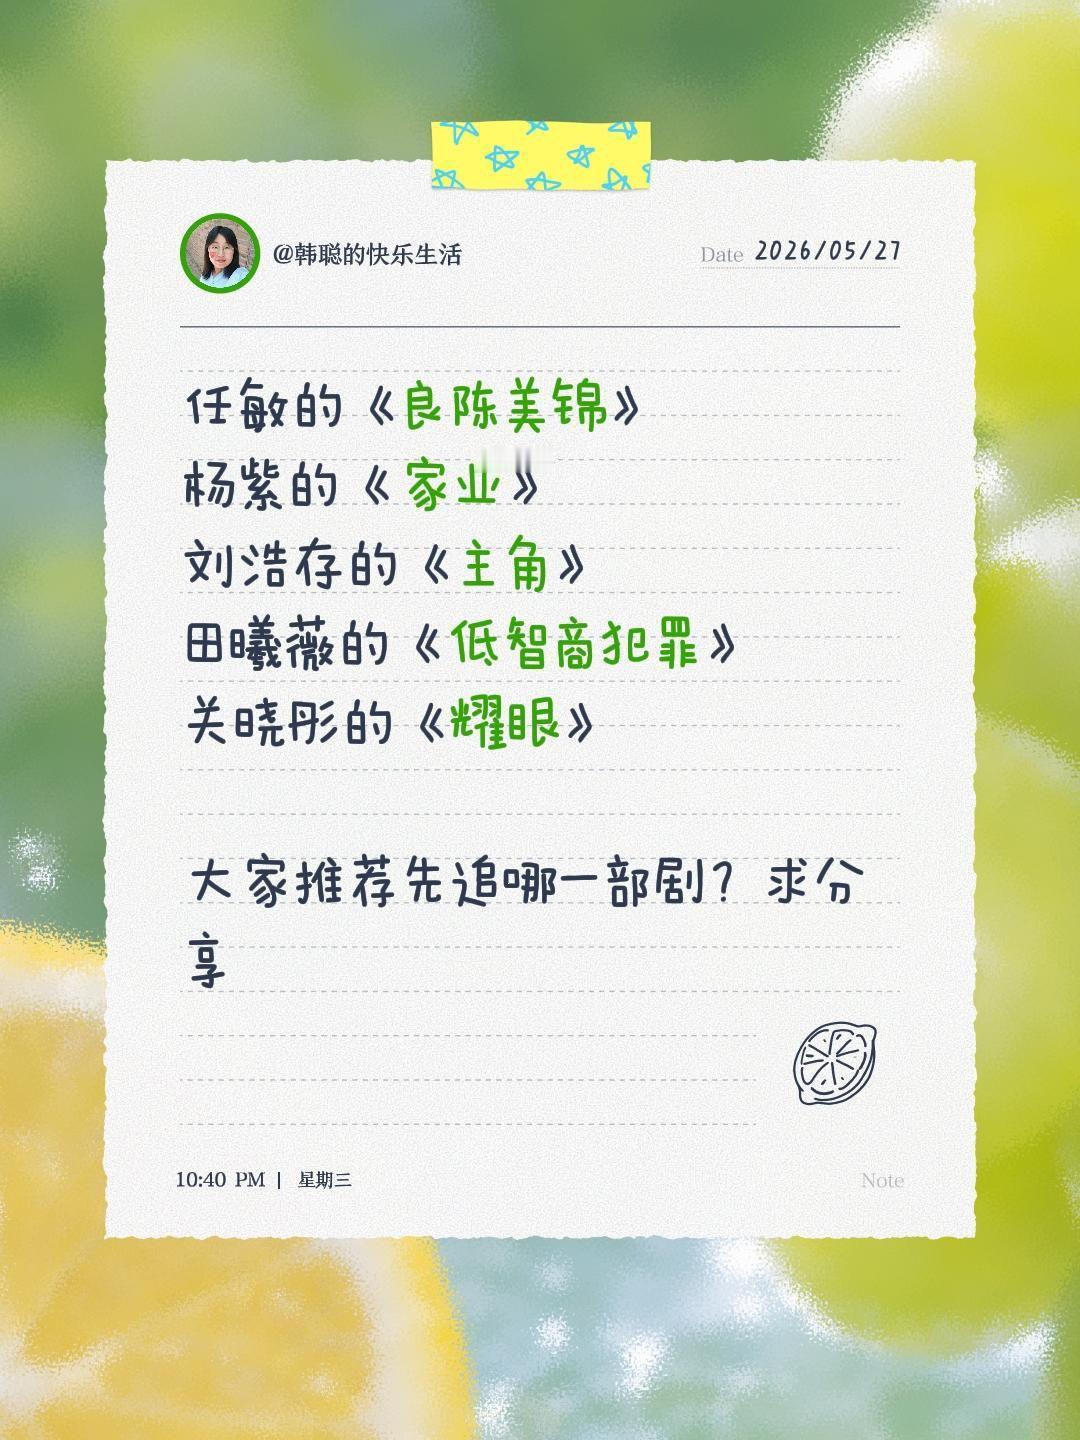 @韩聪的快乐生活
Date 2026/05/27
任敏的《良陈美锦》
杨紫的《家业》
刘浩存的《主角》
田曦薇的《低智商犯罪》
关晓彤的《耀眼》
大家推荐先追哪一部剧？求分
享
10:40 PM | 星期三
Note